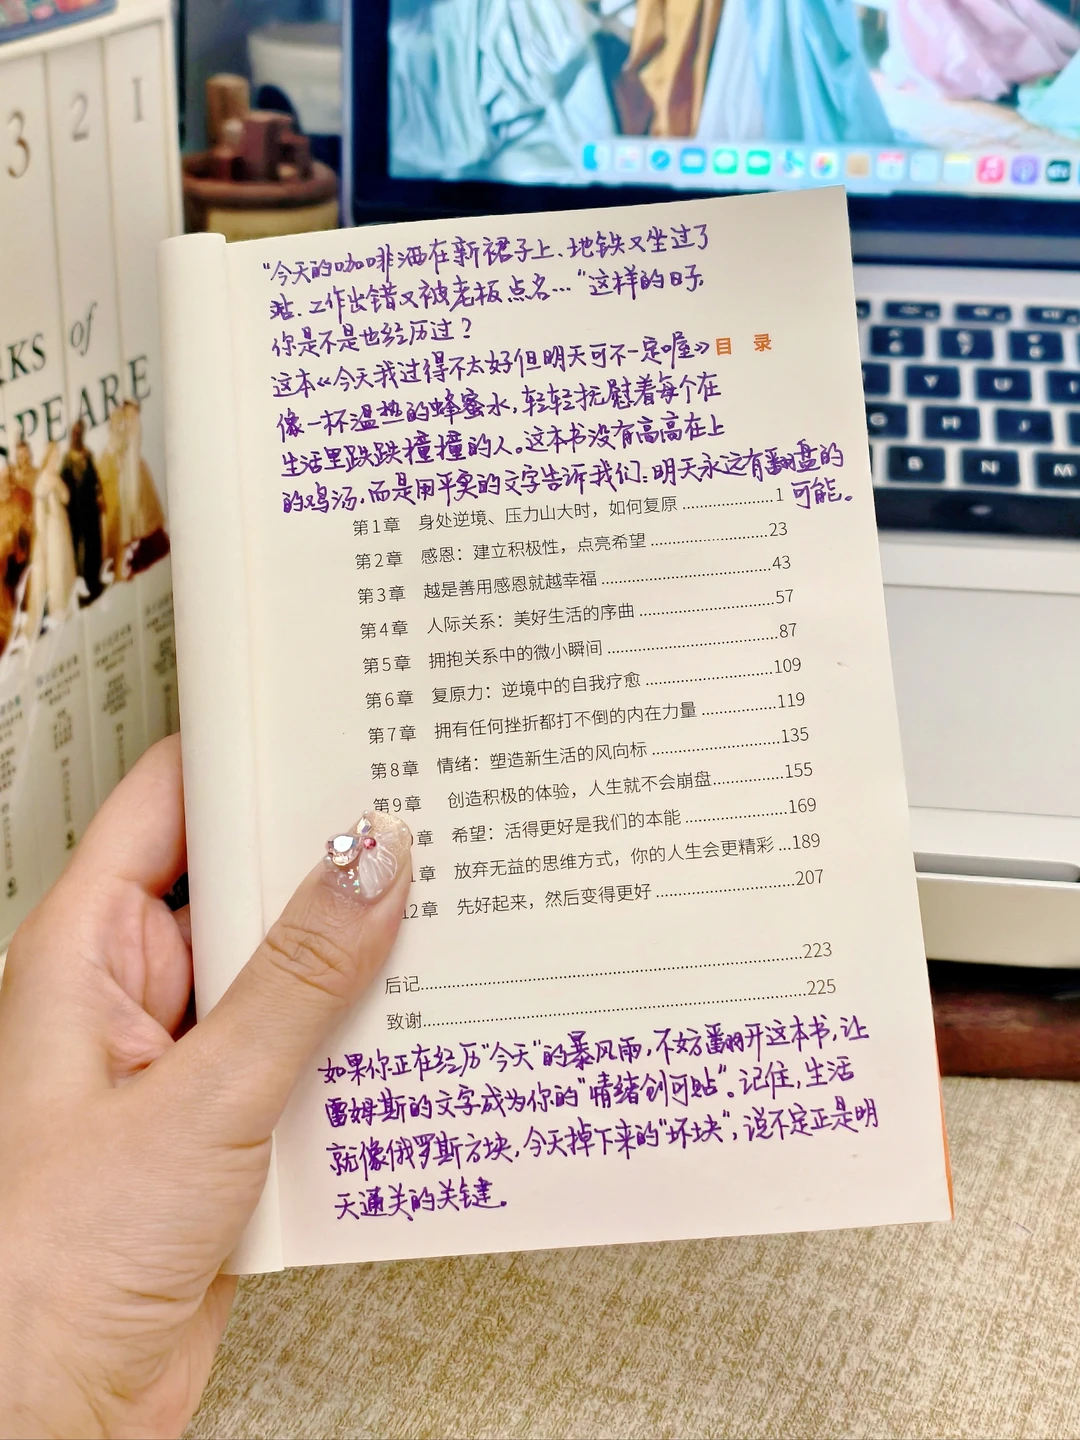 3 2 1
RKS of
SPEARE
"今天的咖啡洒在新裙子上、地铁又坐过了
站、工作出错又被老板点名…"这样的日子,
你是不是也经历过?
这本《今天我过得不太好但明天可不一定喔》
像一杯温热的蜂蜜水,轻轻抚慰着每个在
生活里跌跌撞撞的人。这本书没有高高在上
的鸡汤,而是用平实的文字告诉我们:明天永远有翻盘的
可能。
目 录
第1章 身处逆境、压力山大时，如何复原 ....................1
第2章 感恩：建立积极性，点亮希望 ....................23
第3章 越是善用感恩就越幸福 ....................43
第4章 人际关系：美好生活的序曲 ....................57
第5章 拥抱关系中的微小瞬间 ....................87
第6章 复原力：逆境中的自我疗愈 ....................109
第7章 拥有任何挫折都打不倒的内在力量 ....................119
第8章 情绪：塑造新生活的风向标 ....................135
第9章 创造积极的体验，人生就不会崩盘 ....................155
0章 希望：活得更好是我们的本能 ....................169
1章 放弃无益的思维方式，你的人生会更精彩 ...189
12章 先好起来，然后变得更好 ....................207
后记....................223
致谢....................225
如果你正在经历"今天"的暴风雨,不妨翻开这本书,让
雷姆斯的文字成为你的"情绪创可贴"。记住,生活
就像俄罗斯方块,今天掉下来的"坏块",说不定正是明
天通关的关键。
Y U I
B N M